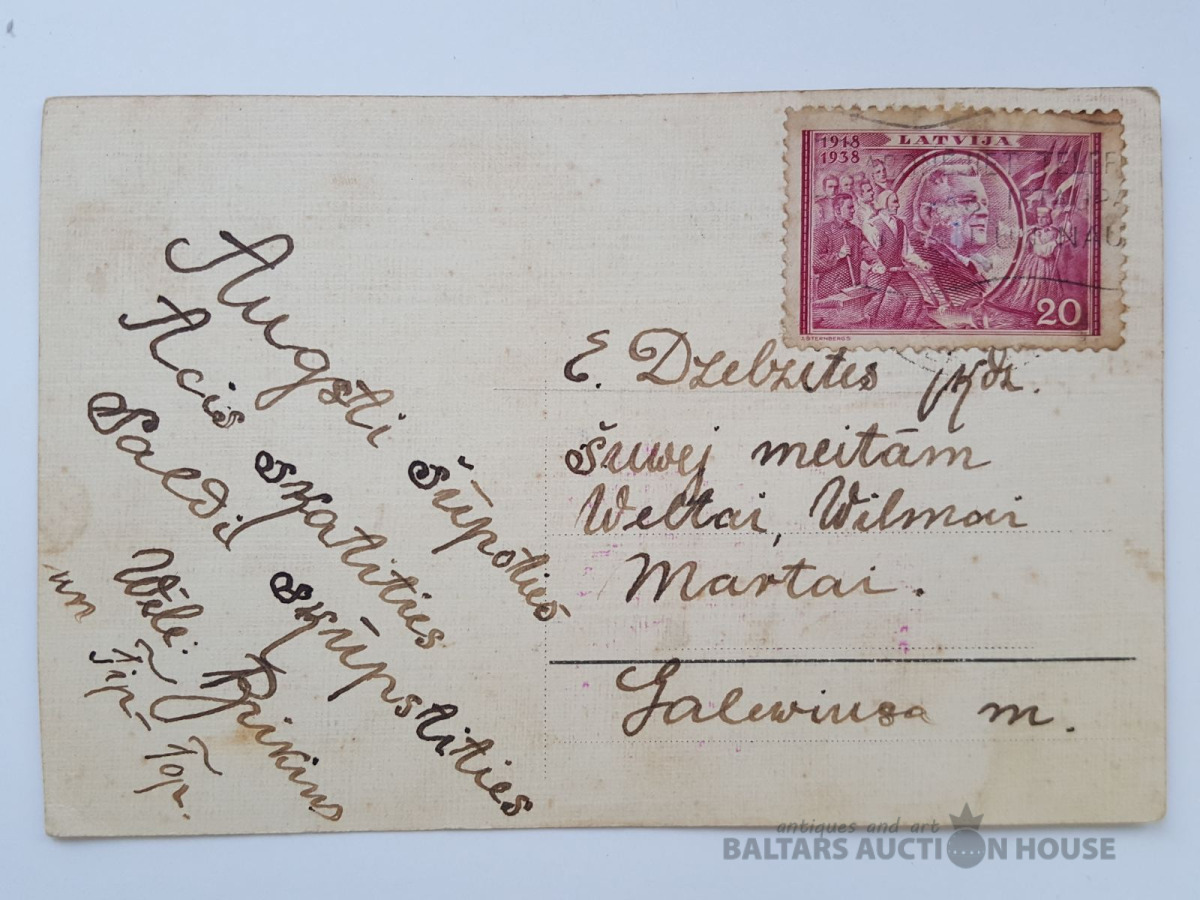 Augsti šūpoties
Acis skatities
Saldi skūpstities
Wēlē: J. Brikins
un Tip-
Top.
1918
1938
LATVIJA
20
J. STERNBERGS
E. Dzelzites jkdz.
šuwej meitām
Weltai, Wilmai
Martai.
Galewiusa m.
antiques and art
BALTARS AUCTION HOUSE